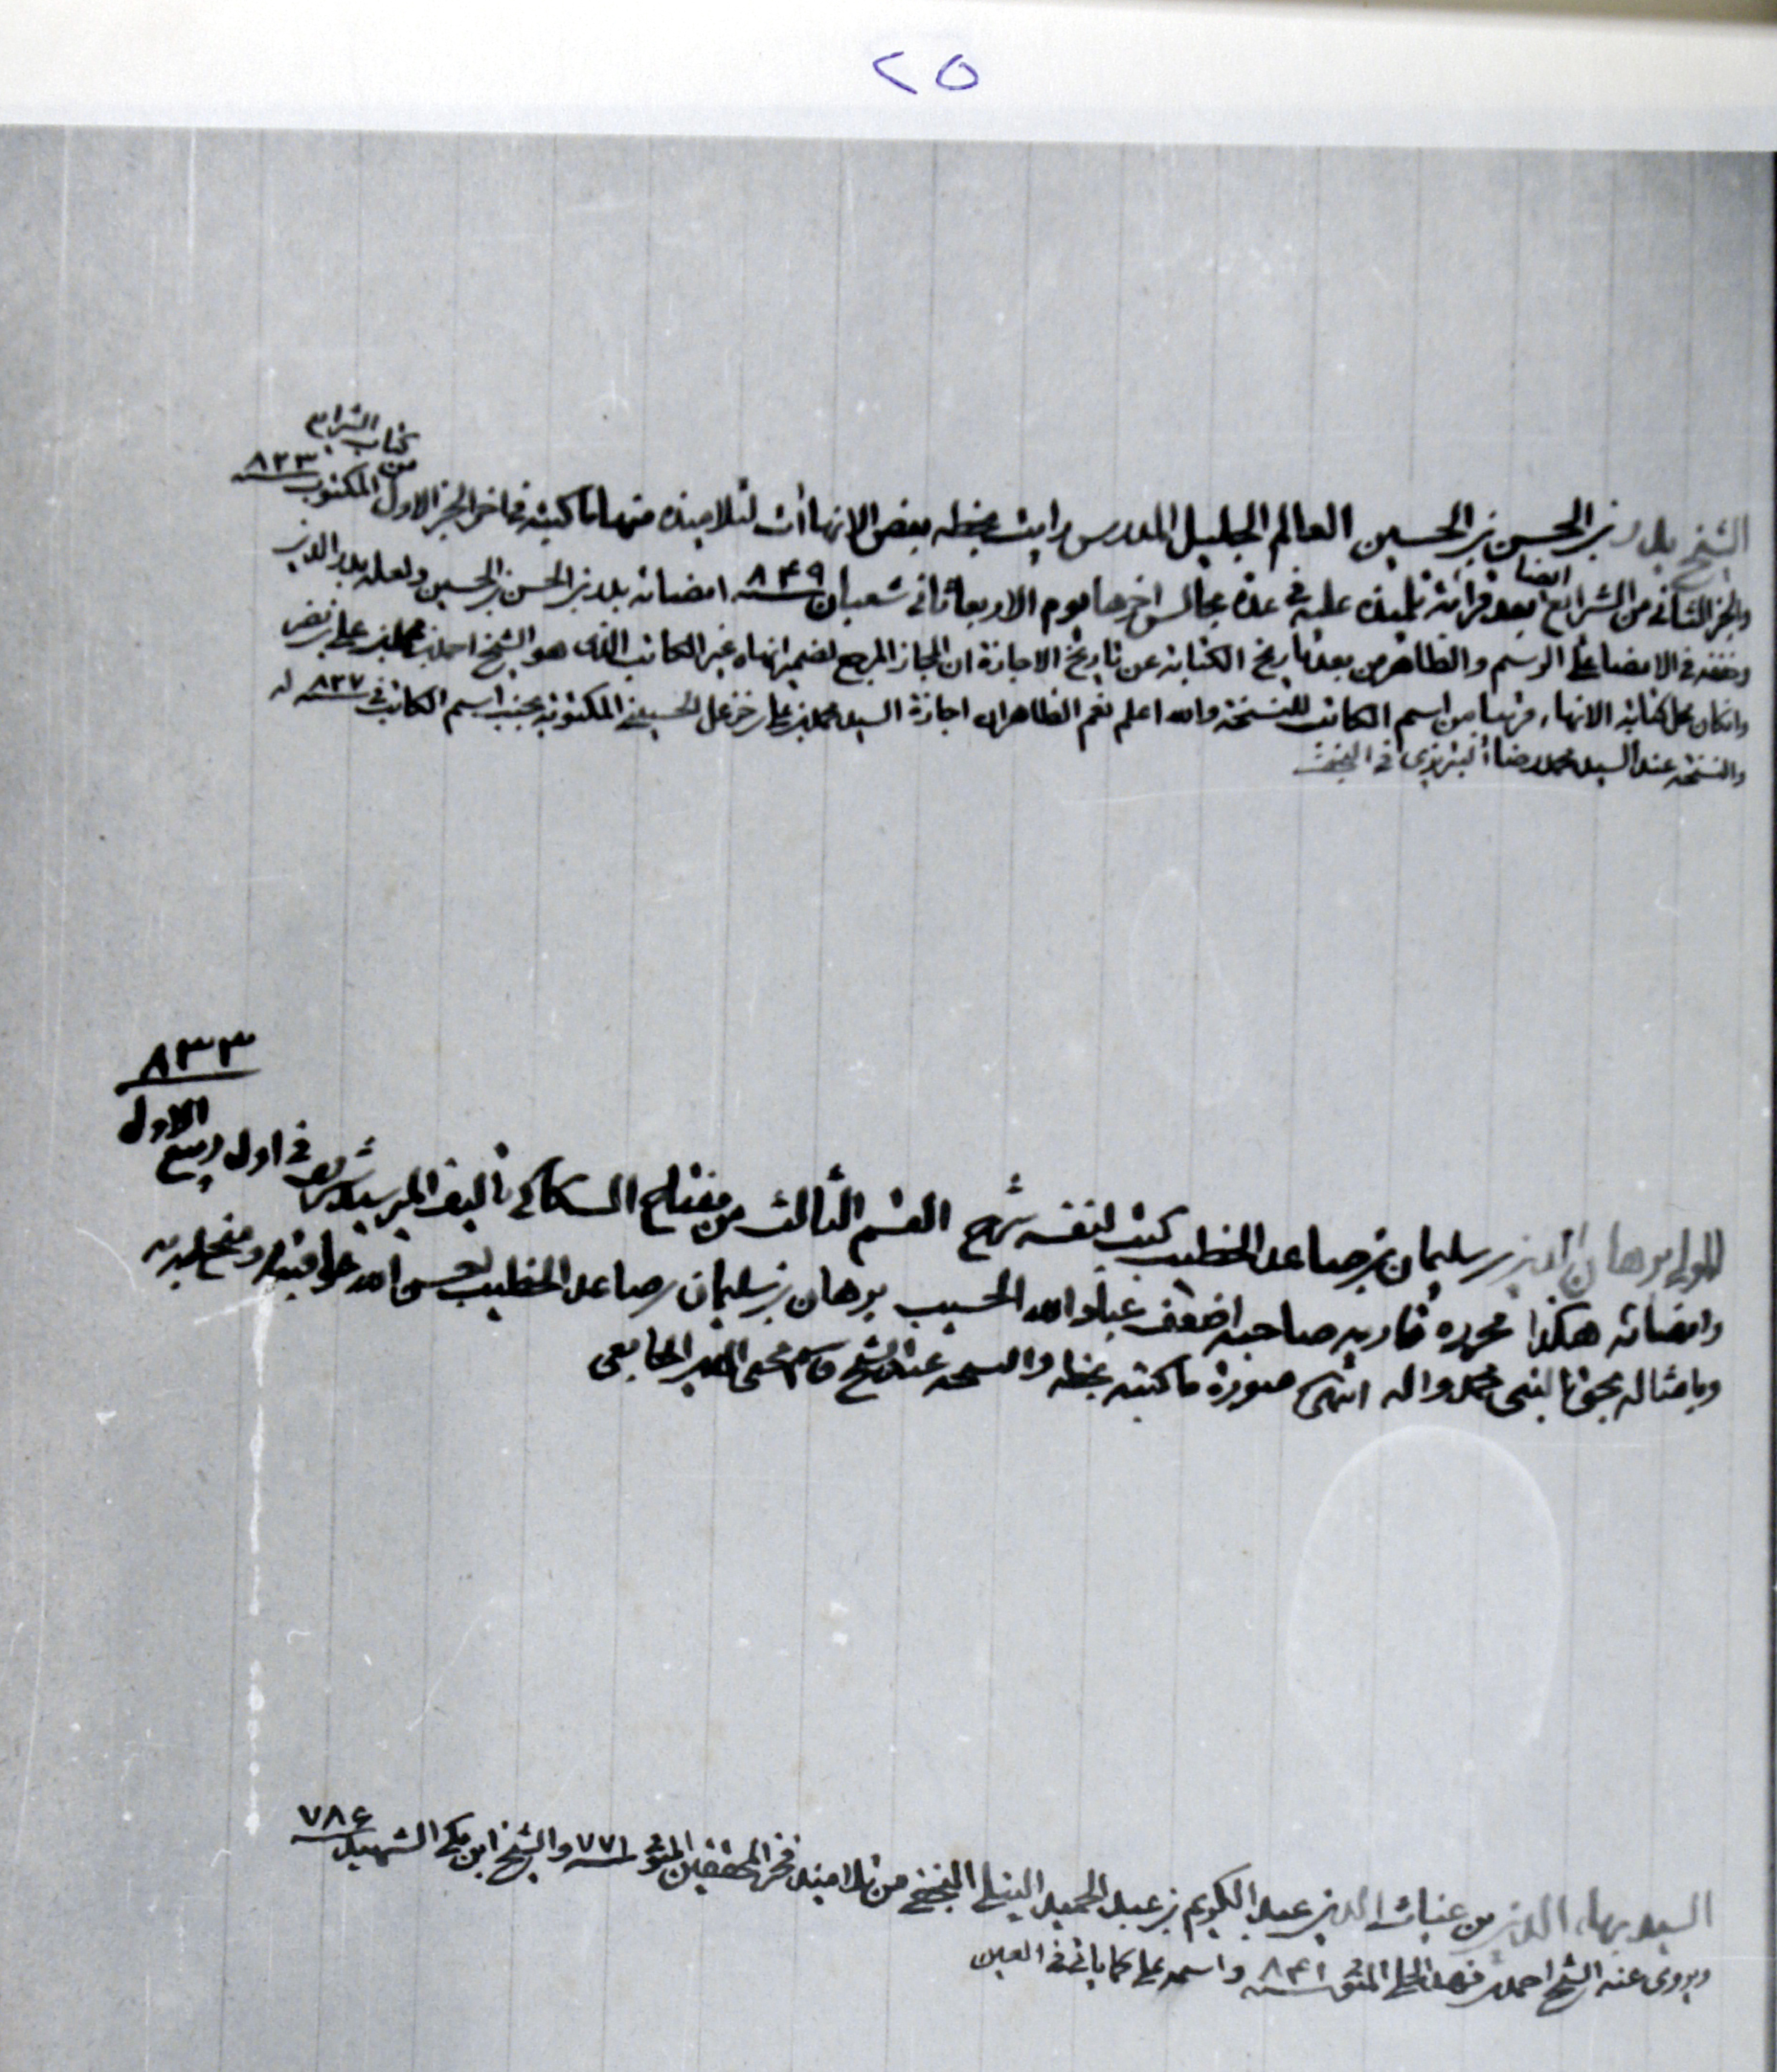 ٢٥
الشيخ بدر بن الحسن بن الحسين العالم الجليل المدرس رايت بخطه بعض الانهاآت لتلاميذه منها ما كتبه في اخر الجزء الاول من كتاب الشرايع المكتوب ٨٣٣
والجزء الثاني من الشرايع ايضا بعد قرائة تلميذه عليه في عدة مجالس اخرها يوم الاربعا ثاني شعبان ٨٤٩ امضائه بدر بن الحسن بن الحسين ولعله بدر الدين
وخففه في الامضا على الرسم والظاهر من بعد تاريخ الكتابة عن تاريخ الاجازة ان المجاز المرجع لضمير انهاه غير الكاتب الذى هو الشيخ احمد بن محمد بن علي بن نصر
وان كان محل كتابة الانهاء قريبا من اسم الكاتب للنسخة والله اعلم نعم الظاهر ان اجازة السيد محمد بن علي بن خزعل الحسيني المكتوبة بجنب اسم الكاتب في ٨٣٧ له
والنسخة عند السيد محمد رضا التبريزى في النجف
المولى برهان الدين بن سليمان بن صاعد الخطيب كتب لنفسه شرح القسم الثالث من مفتاح السكاكي تاليف المير سيد شريف في اول ربيع الاول ٨٣٣
وامضائه هكذا محرره قاريه صاحبه اضعف عباد الله الحسيب برهان بن سليمان بن صاعد الخطيب احسن الله عواقبه ومتع به
وبامثاله بحق النبى محمد واله انتهى صورة ما كتبه بخطه والنسخه عند الشيخ قاسم محى الدين الجامعى
السيد بهاء الدين بن غياث الدين عبد الكريم بن عبد الحميد النيلي النجفي من تلاميذ فخر المحققين المتوفى ٧٧١ والشيخ ابن مكي الشهيد ٧٨۶
ويروى عنه الشيخ احمد بن فهد الحلي المتوفى ٨۴١ واسمه علي كما ياتي في العين